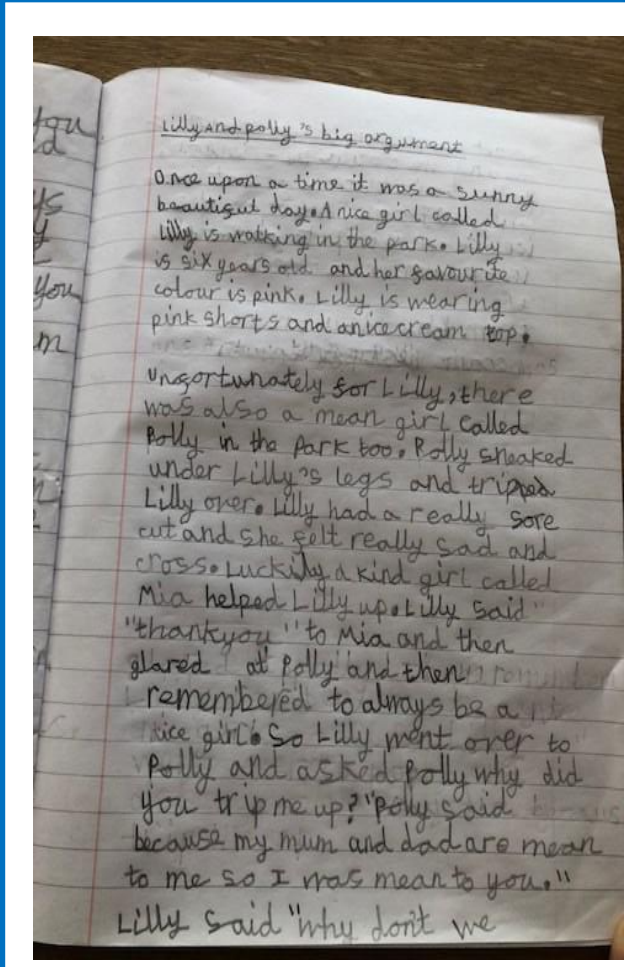 you
d
ys
y
you
m
Lilly And polly's big argument
Once upon a time it was a sunny
beautiful day. A nice girl called
Lilly is walking in the park. Lilly
is six years old and her favourite
colour is pink. Lilly is wearing
pink shorts and an ice cream top.
Unfortunately for Lilly, there
was also a mean girl called
Polly in the park too. Polly sneaked
under Lilly's legs and tripped
Lilly over. Lilly had a really sore
cut and she felt really sad and
cross. Luckily a kind girl called
Mia helped Lilly up. Lilly said "
"thankyou" to Mia and then
glared at Polly and then
remembered to always be a
nice girl. So Lilly went over to
Polly and asked Polly why did
you trip me up? "Polly said
because my mum and dad are mean
to me so I was mean to you."
Lilly said "why don't we